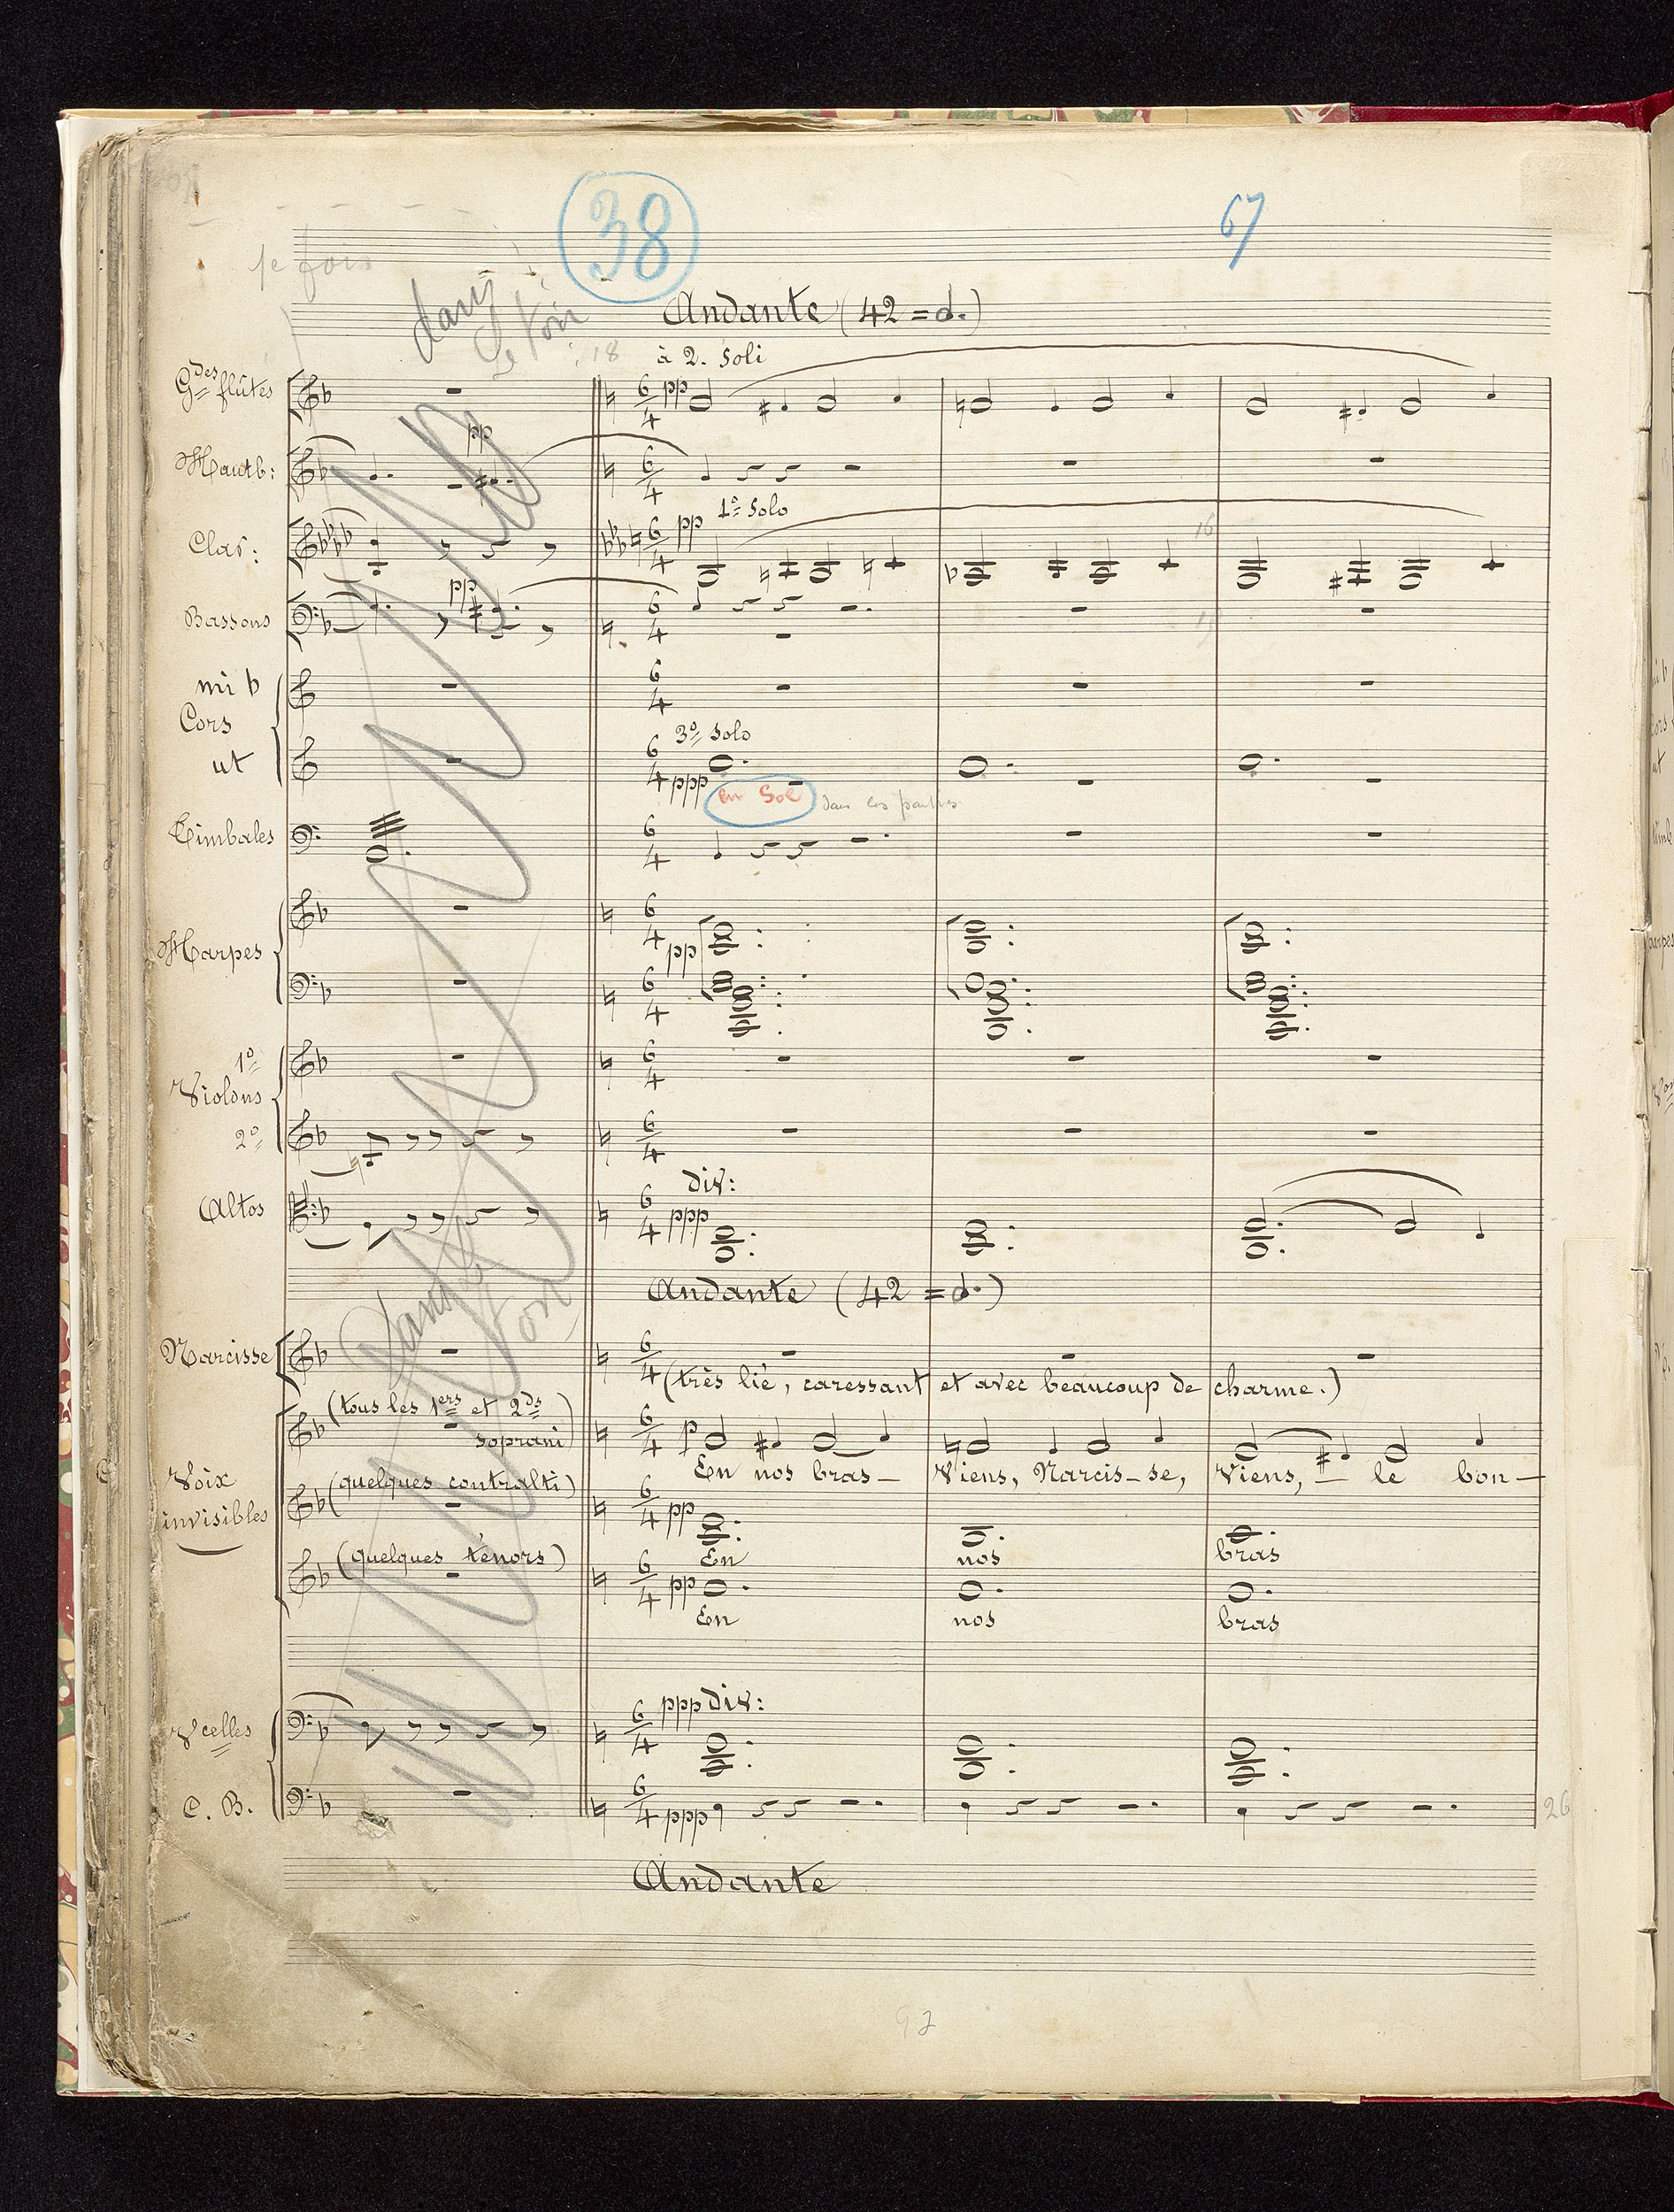 38
67
1e fois
dans
le ton
Andante (42 = d.)
18
à 2. Soli
Gdes flûtes
pp
pp
Hautb:
1º Solo
Clar:
pp
16
pp
Bassons
mi b
Cors
3º Solo
ut
ppp
en Sol
dans les parties
Timbales
Harpes
pp
1º
Violons
2º
div:
Altos
ppp
Dans le
ton
Andante (42 = d.)
Narcisse
(très lié, caressant et avec beaucoup de charme.)
(tous les 1ers et 2ds
soprani)
p
En nos bras — Viens, Narcis-se, Viens, — le bon—
Voix
invisibles
(quelques contralti)
pp
En nos bras
(quelques ténors)
pp
En nos bras
ppp div:
Vcelles
C. B.
ppp
26
Andante
97